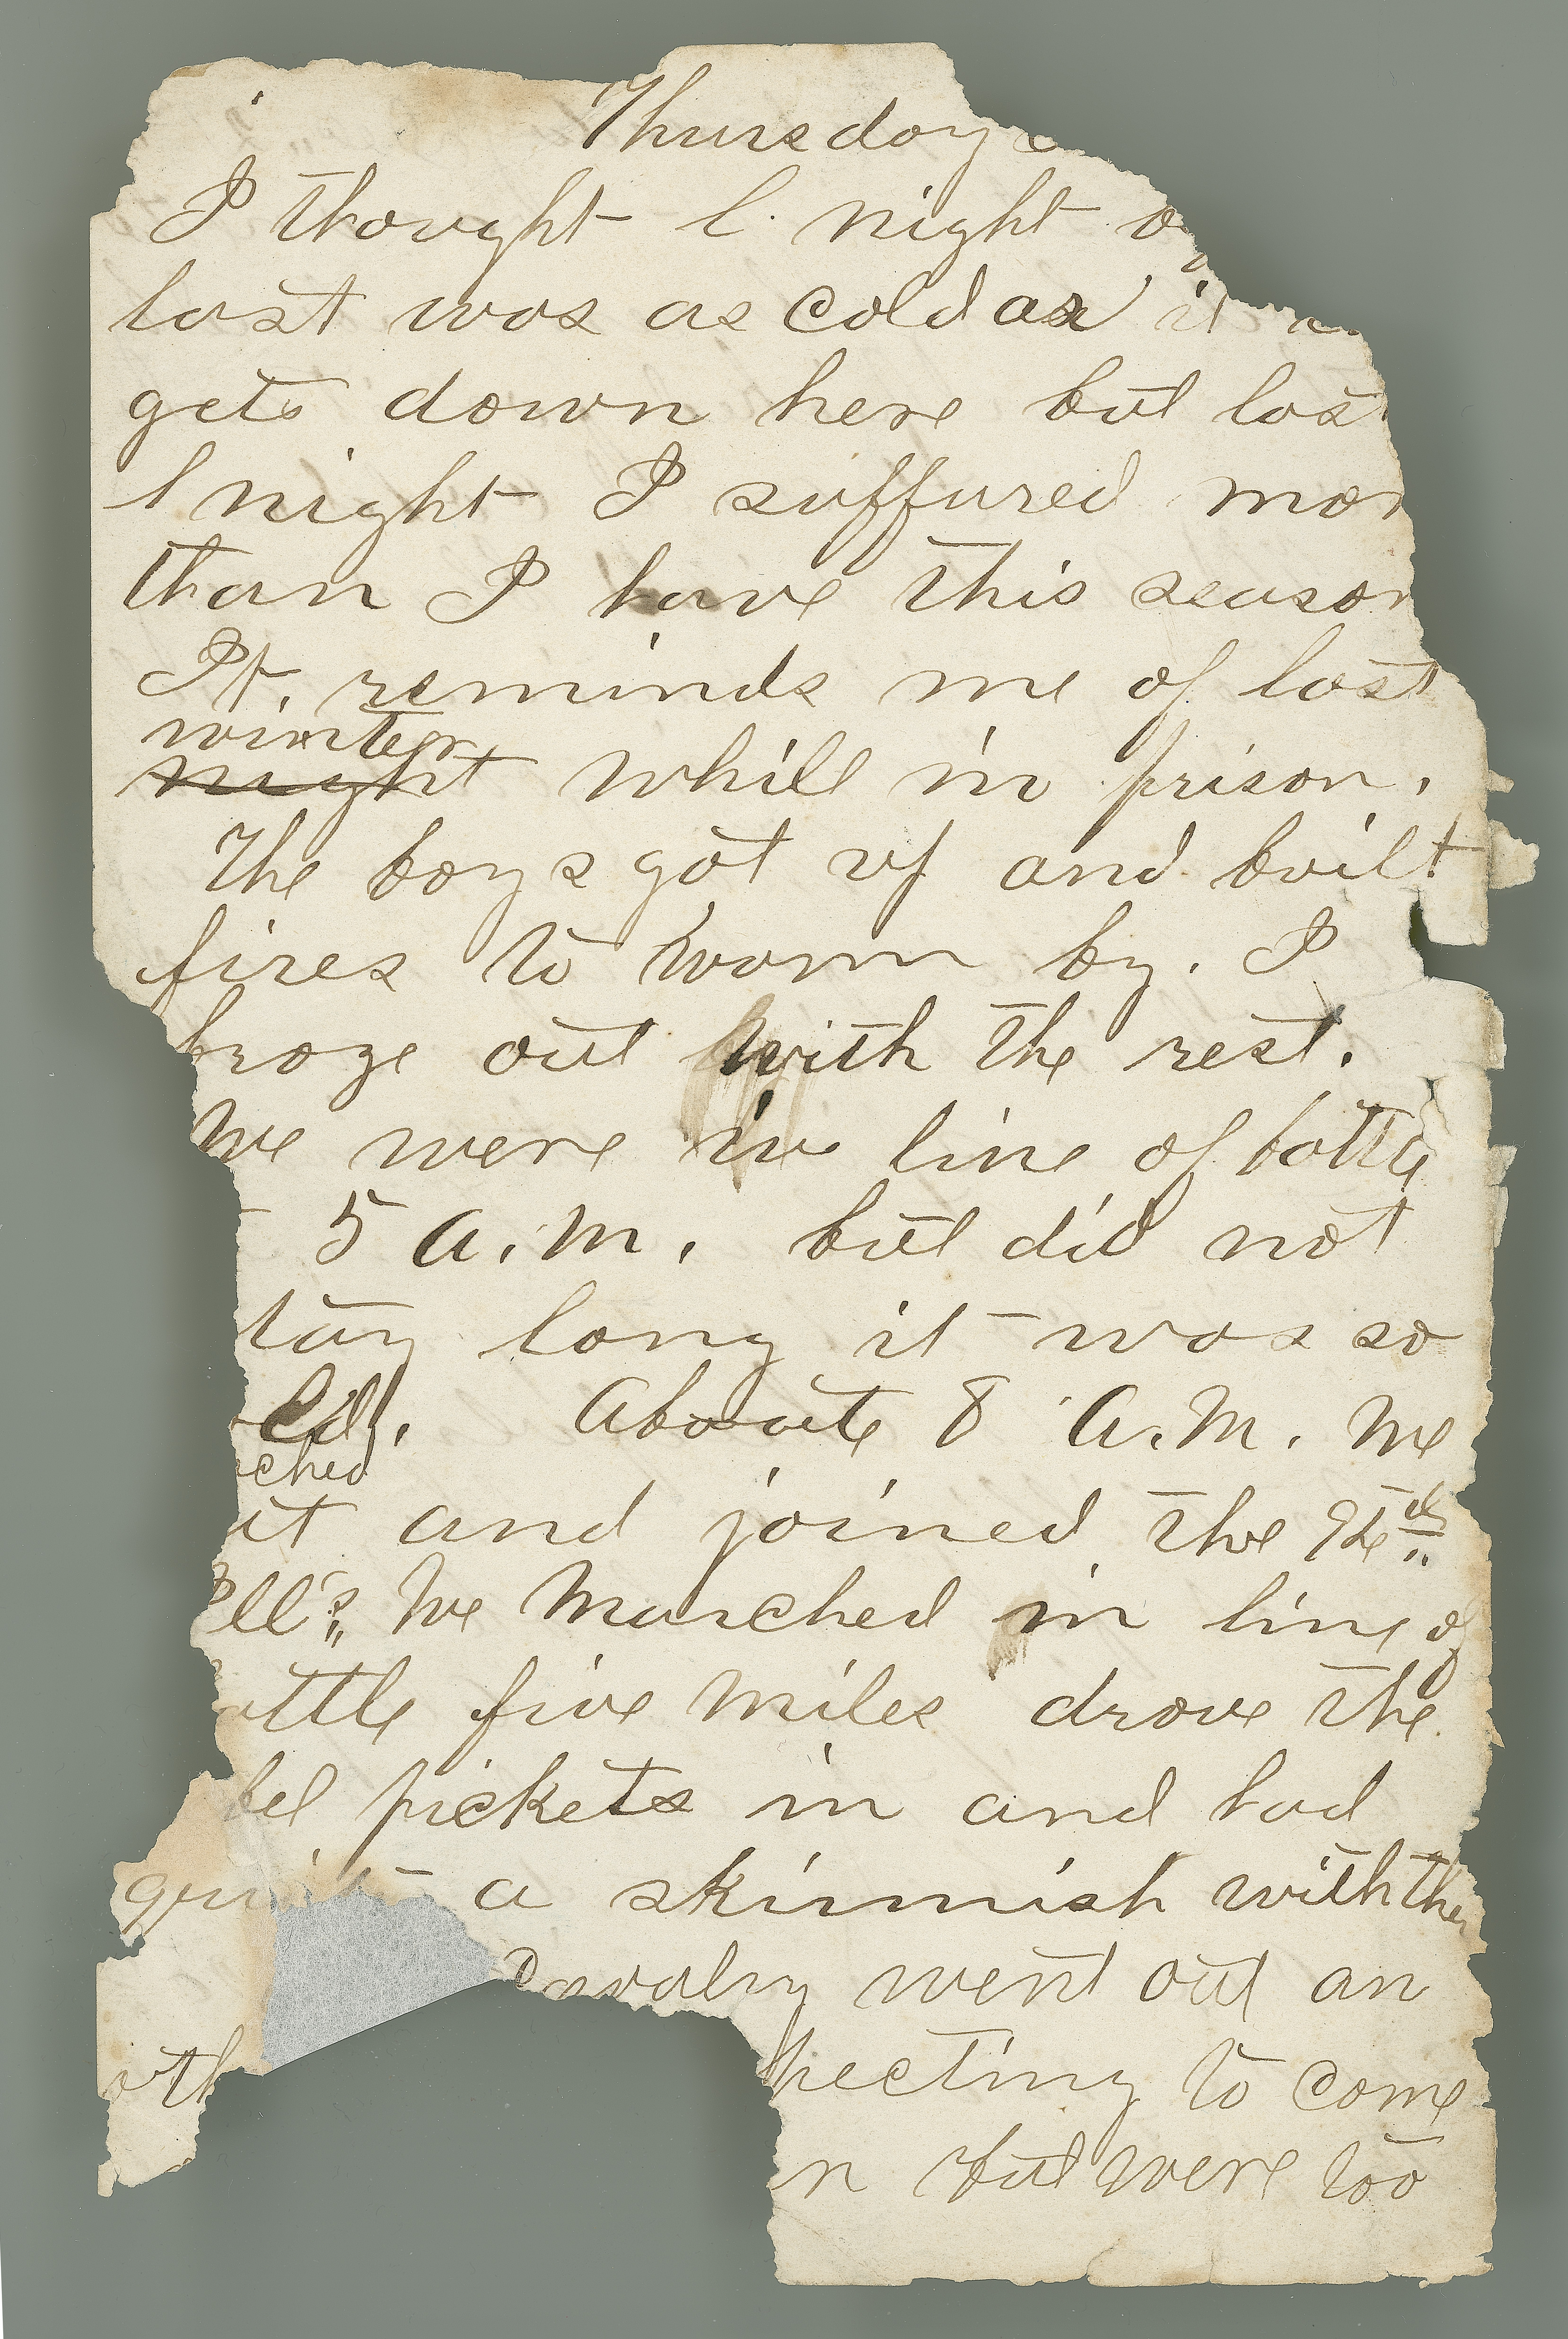 Thursday
I thought l. night
last was as cold as it
gets down here but las
l night I suffured mor
than I have this season
It. reminds me of last
winter
night while in prison.
The boys got up and built
fires to warm by. I
froze out with the rest.
We were in line of battle
5 A.M. but did not
tay long it was so
ched
About 8 A.M. we
ut and joined the
Ills. We marched in line of
attle five miles drove the
bel pickets in and had
a skirmish with the
Cavalry went out an
oth pecting to come
n but were too